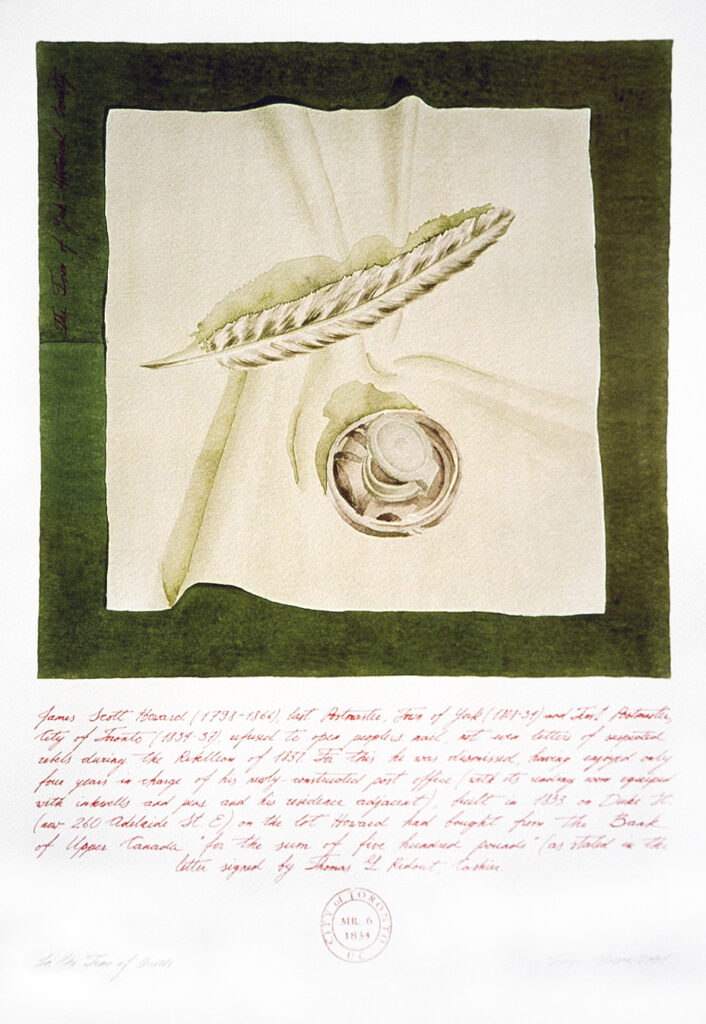 The Town of York Historical Society
James Scott Howard (1798-1866), last Postmaster, Town of York (1828-34) and first Postmaster,
City of Toronto (1834-37) refused to open people's mail, not even letters of suspected
rebels during the Rebellion of 1837. For this he was dismissed, having enjoyed only
four years in charge of his newly-constructed post office (with its reading room equipped
with inkwells and pens and his residence adjacent), built in 1833 on Duke St.
(now 260 Adelaide St. E) on the lot Howard had bought from the Bank
of Upper Canada "for the sum of five hundred pounds" (as stated in the
letter signed by Thomas G. Ridout, Cashier
CITY OF TORONTO
MR. 6
1834
U.C.
In the Time of Quills